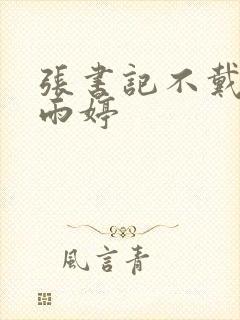 張書記不戴
雨婷
風言青